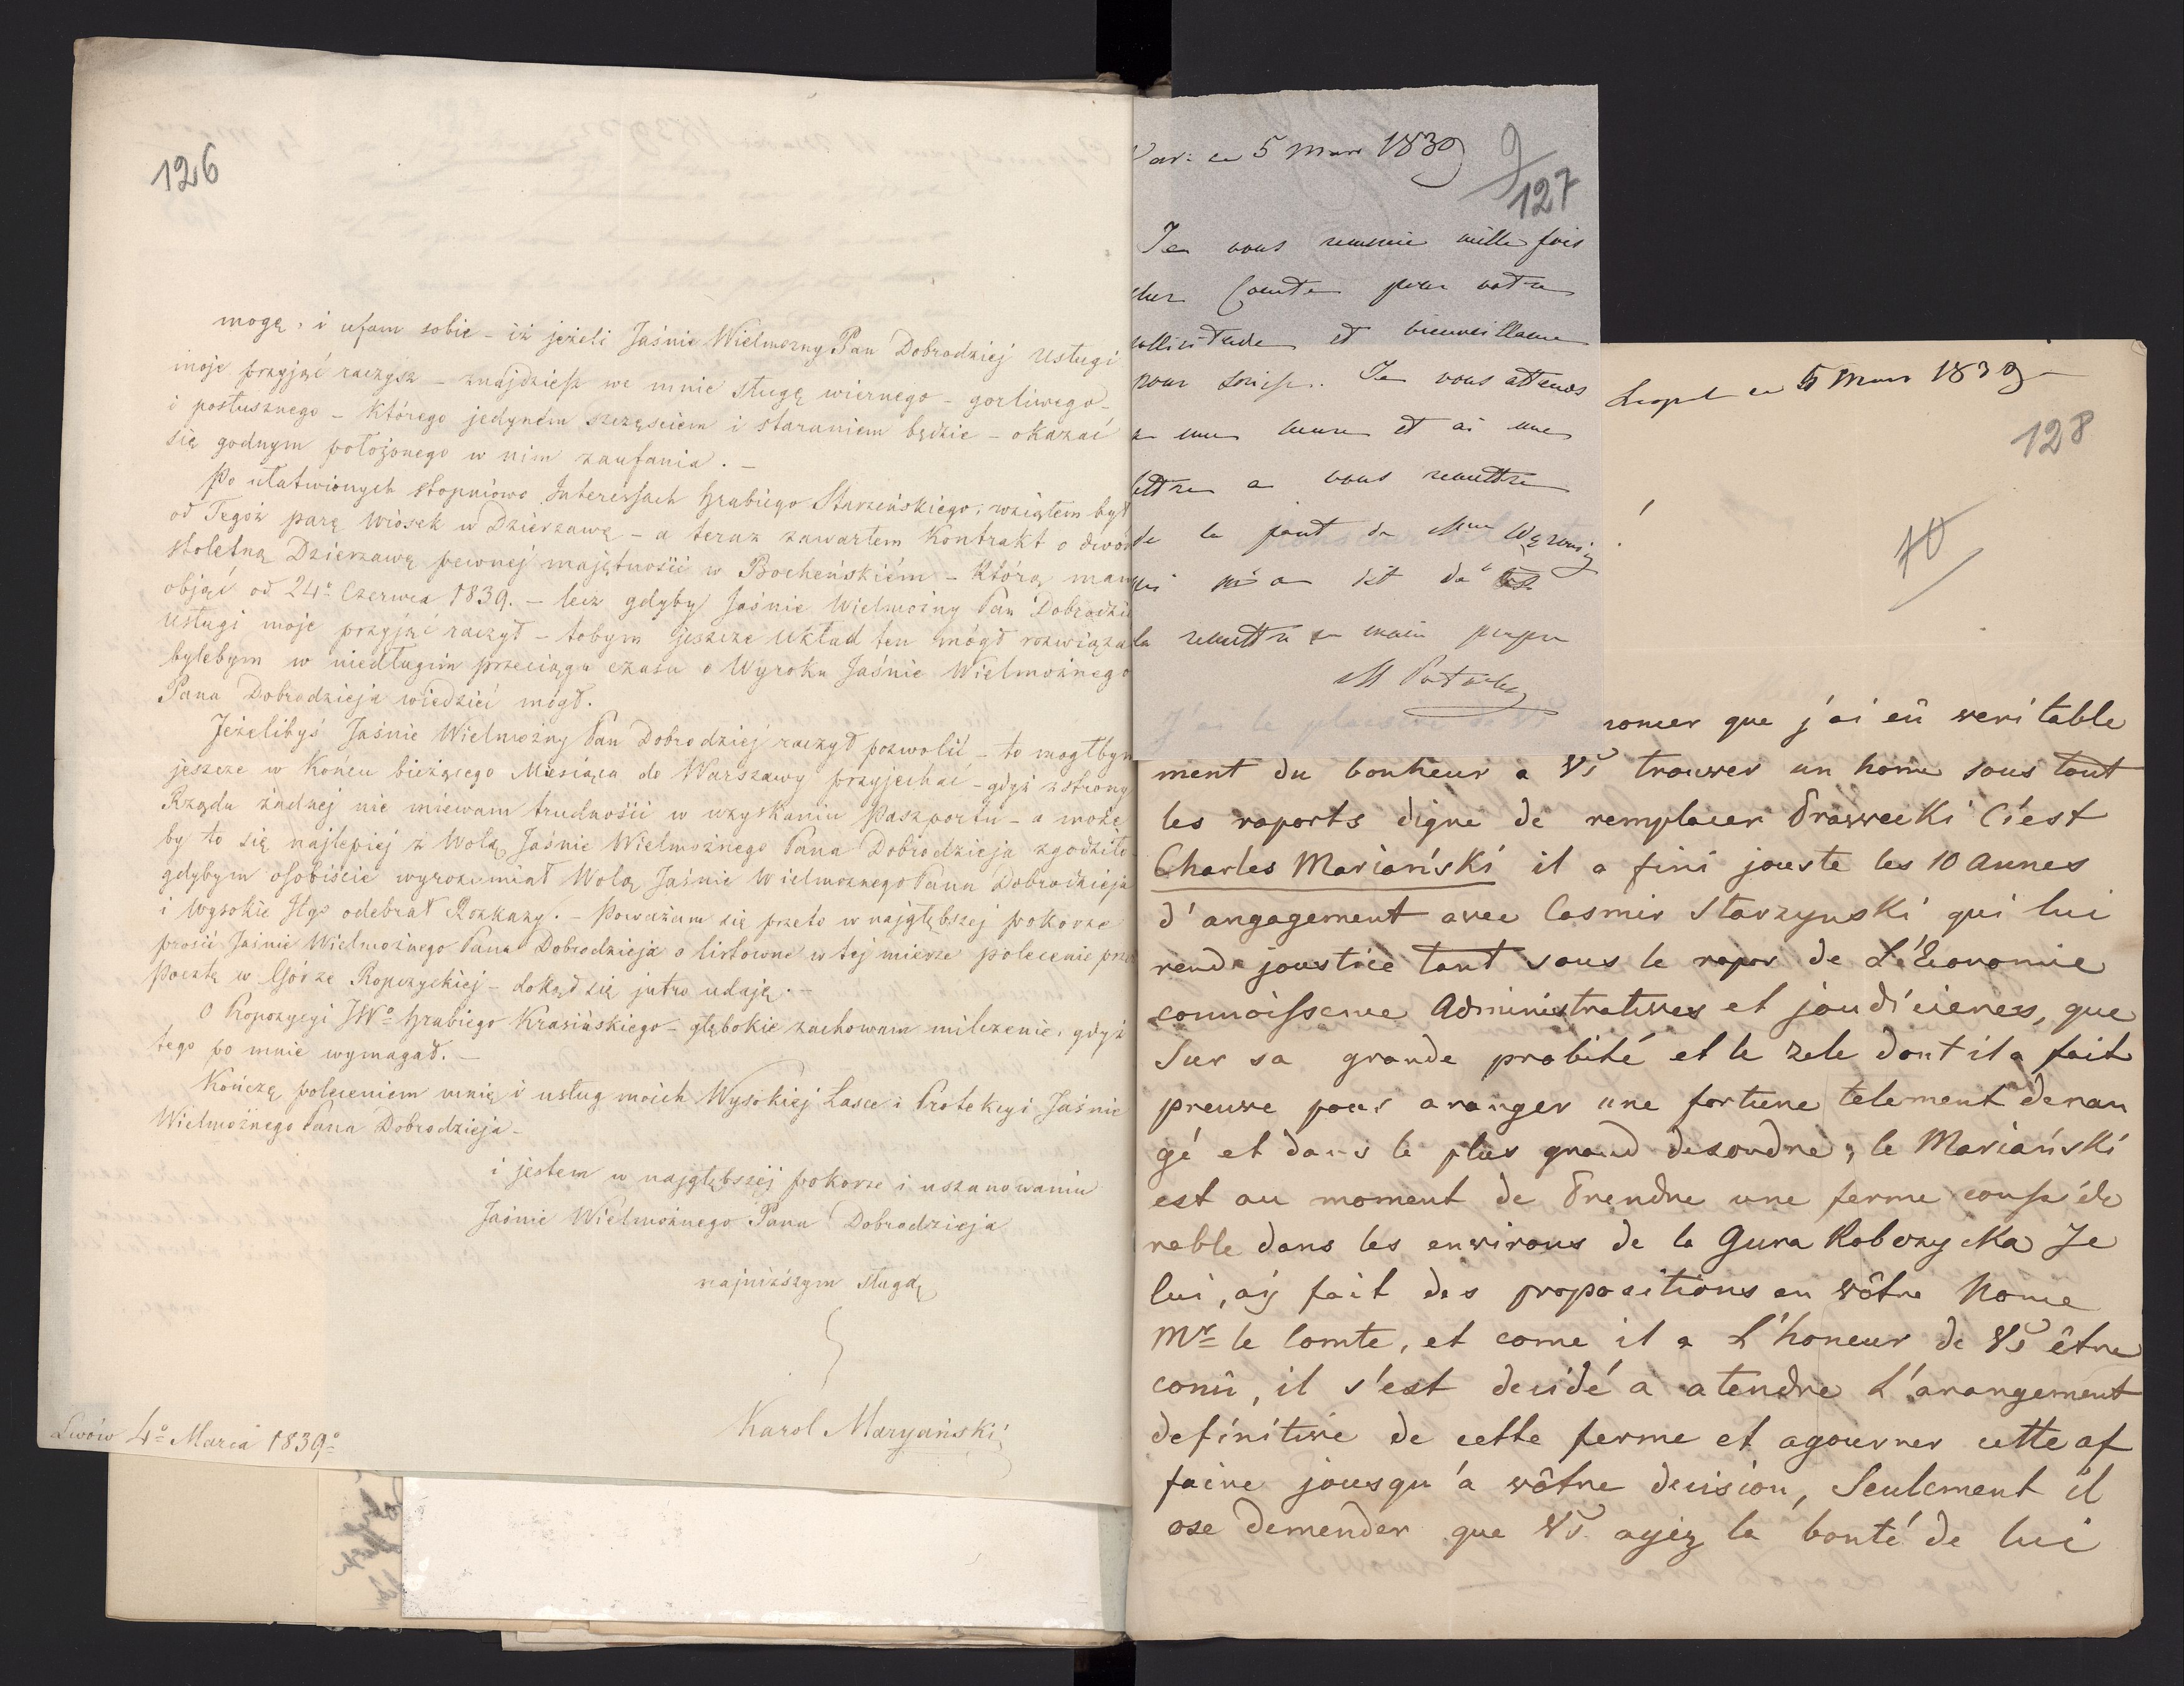 126
mogę, i ufam sobie – iż jeżeli Jaśnie Wielmożny Pan Dobrodziej Usługi
moje przyjąć raczysz – znajdziesz we mnie sługę wiernego – gorliwego –
i posłusznego – którego jedyném szczęściem i staraniem będzie – okazać
się godnym położonego w nim zaufania. –
Po ułatwionych stopniowo Interessach Hrabiego Starzeńskiego, wziąłem był
od Tegoż parę wiosek w Dzierżawę – a teraz zawarłem Kontrakt o dwón
stoletną Dzierżawę pewnej majętności w Bocheńskiém – którą mam
objąć od 24º Czerwca 1839. – lecz gdyby Jaśnie Wielmożny Pan Dobrodzie
usługi moje przyjąć raczył – tobym jeszcze układ ten mógł rozwiąza
bylebym w niedługim przeciągu czasu o Wyroku Jaśnie Wielmożnego
Pana Dobrodzieja wiedzieć mógł.
Jeżelibyś Jaśnie Wielmożny Pan Dobrodziej raczył pozwolić – to mogłbym
jeszcze w końcu bieżącego Miesiąca do Warszawy przyjechać – gdyż z strony
Rządu żadnej nie miewam trudności w uzyskaniu Paszportu – a może
by to się najlepiej z Wolą Jaśnie Wielmożnego Pana Dobrodzieja zgodziło
gdybym osobiście wyrozumiał Wolą Jaśnie Wielmożnego Pana Dobrodzieja
i wysokie Jego odebrał Rozkazy. – Poważam się przeto w najgłębszej pokorze
prosić Jaśnie Wielmożnego Pana Dobrodzieja o listowne w tej mierze polecenie prze
Pocztę w Górze Ropczyckiej – dokąd się jutro udaję. –
O Propozycyi JWº Hrabiego Krasińskiego – głębokie zachowam milczenie, gdyż
tego po mnie wymagał. –
Kończę poleceniem mnię i usług moich Wysokiej Łasce i Protekcyi Jaśnie
Wielmożnego Pana Dobrodzieja –
i jestem w najgłębszej pokorze i uszanowaniu
Jaśnie Wielmożnego Pana Dobrodzieja
najniższym sługą
Karol Maryański
Lwów 4º Marca 1839º
Var: ce 5 Mars 1839
9
127
Je vous remercie mille fois
cher Comte pour votre
sollicitude et bienveillance
pour Je vous attends
a une heure et ai une
lettre a vous remettre
de la part de Mme
qui m'a dit de
la remettre en main propre
M Potocki
Leopol ce 5 Mars 1839
128
70
J'ai le plaisir de Vs anoncer que j'ai eû veritable
ment du bonheur a Vs trouver un home sous tout
les raports digne de remplacer Prawecki C'est
Charles Mariański il a fini jouste les 10 annes
d'angagement avec Casmir Starzynski qui lui
rend joustice tant sous le rapor de L'Economie
connoissence Administratives et joudicieres, que
sur sa grande probité et le zele dont il a fait
preuve pour aranger une fortune telement deran
gé et dans le plus grand desordre, le Mariański
est au moment de Prendre une ferme conside
rable dans les environs de la Gura Robczycka Je
lui, aÿ fait des propositions en vôtre Nome
Mr le Comte, et come il a L'honeur de Vs être
conû, il s'est decidé a atendre L'arangement
definitive de cette ferme et agourner cette af
faire jousqu'a vôtre decision, Seulement il
ose demender que Vs. ayez la bonté de lui